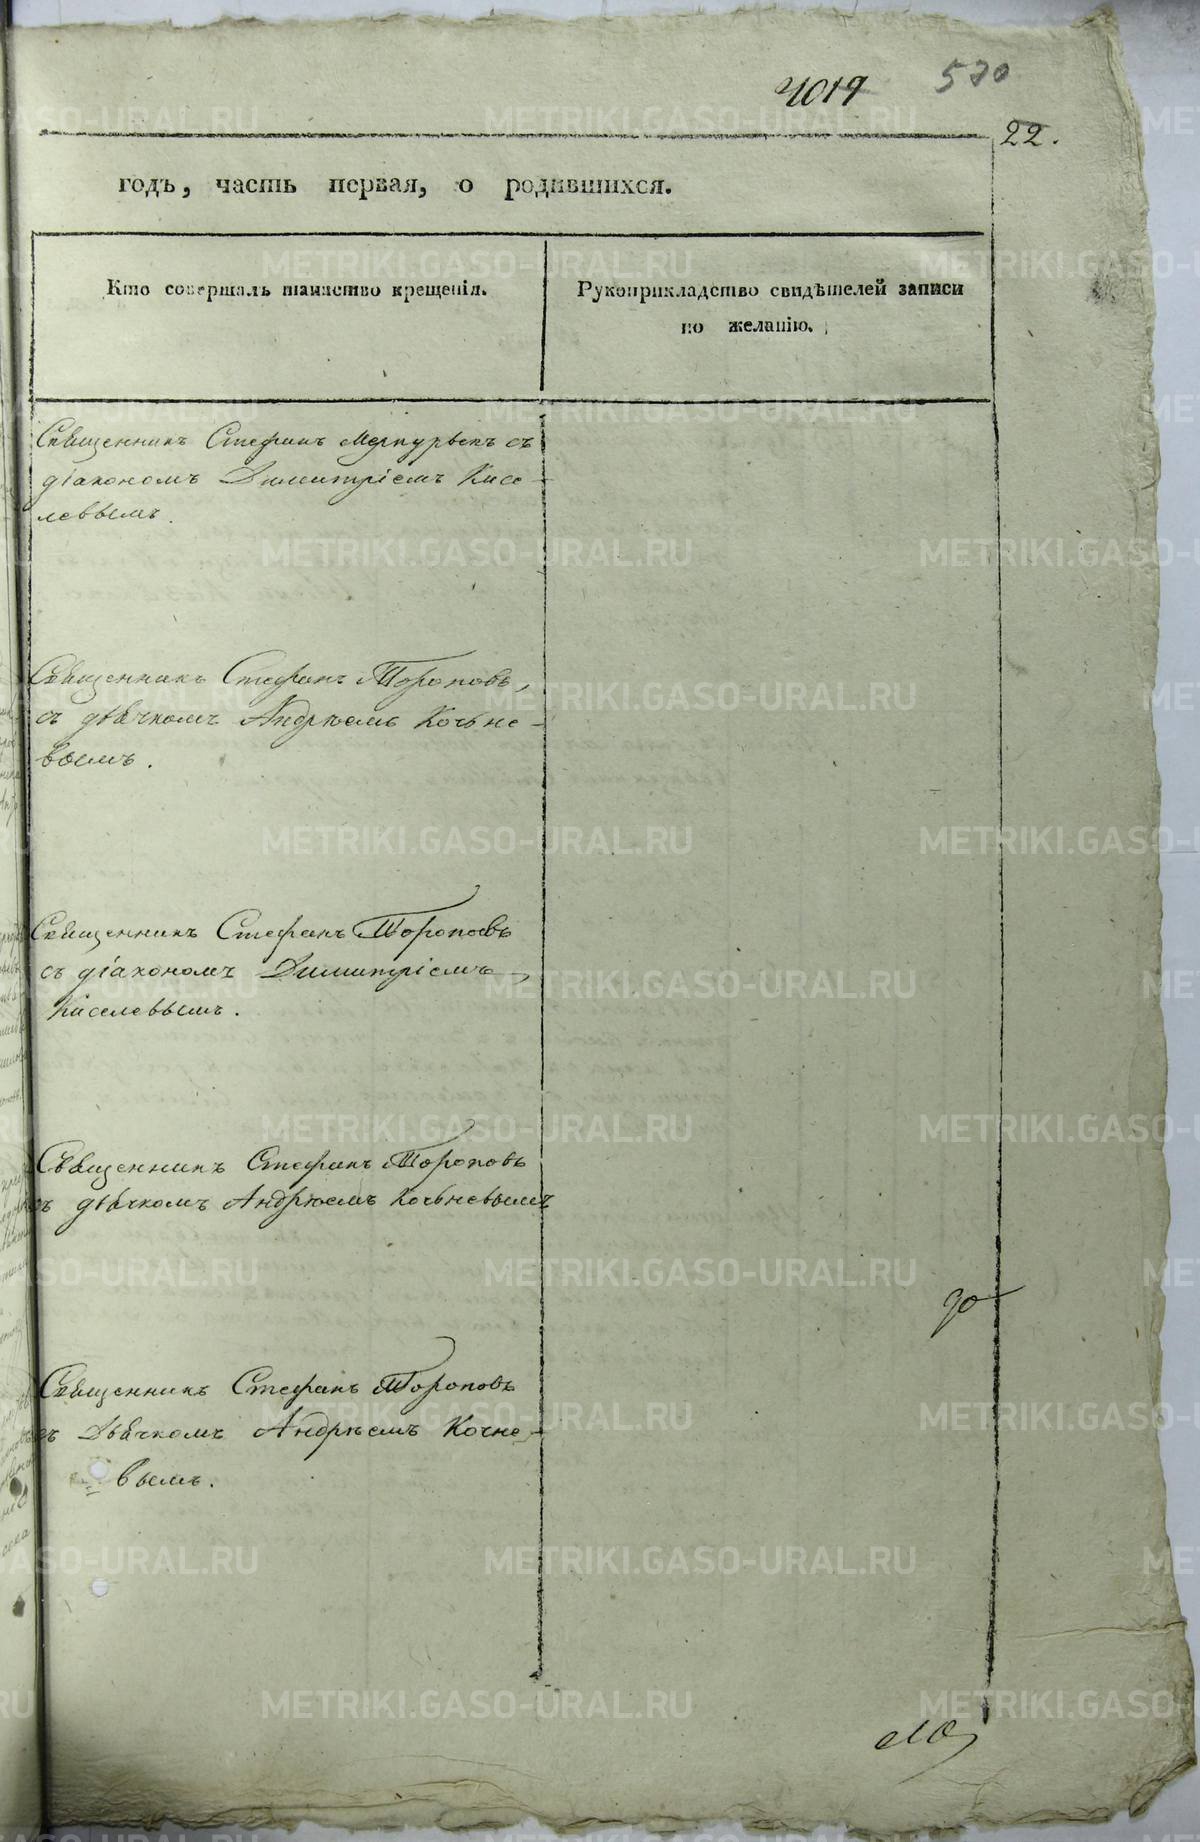 4019 520
22.
годъ, часть первая, о родившихся.
Кто совершалъ таинство крещенія.
Рукоприкладство свидѣтелей записи
по желанію.
Священникъ Стефанъ Меркурьевъ съ
діакономъ Димитріемъ Кисе-
левымъ.
Священникъ Стефанъ Тороповъ,
съ дьячкомъ Андрѣемъ Кочьне-
вымъ.
Священникъ Стефанъ Тороповъ
съ діакономъ Димитріемъ
Киселевымъ.
Священникъ Стефанъ Тороповъ
съ дьячкомъ Андрѣемъ Кочьневымъ
Священникъ Стефанъ Тороповъ
съ Дьячкомъ Андрѣемъ Кочне-
вымъ.
METRIKI.GASO-URAL.RU